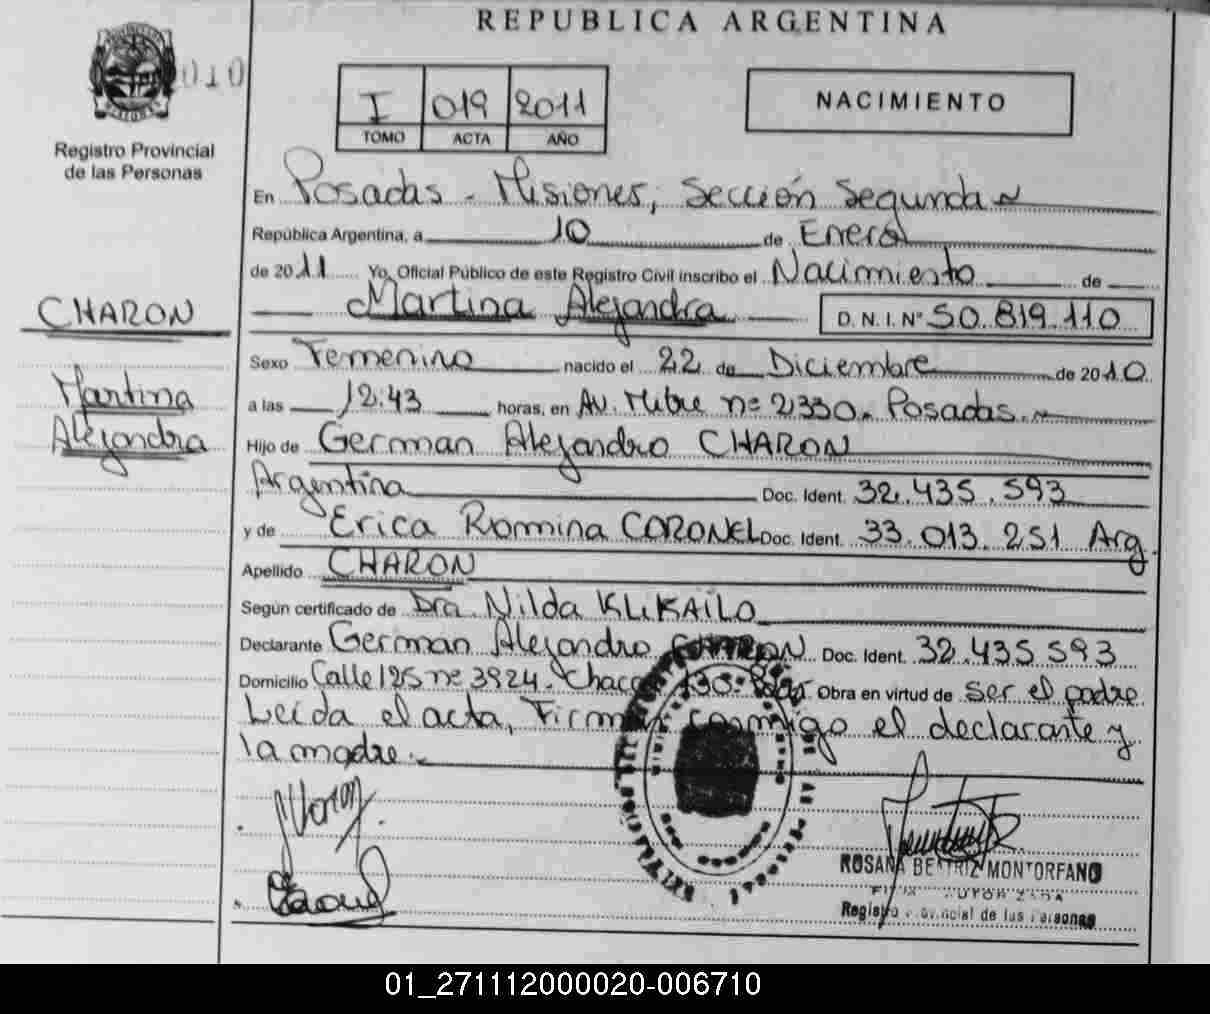 REPUBLICA ARGENTINA
010
Registro Provincial
de las Personas
I 019 2011
TOMO ACTA AÑO
NACIMIENTO
En Posadas - Misiones, Sección Segunda
República Argentina, a 10 de Enero
de 2011 Yo, Oficial Público de este Registro Civil inscribo el Nacimiento de
Martina Alejandra D.N.I. Nº 50.819.110
CHARON
Martina
Alejandra
Sexo Femenino nacido el 22 de Diciembre de 2010
a las 12:43 horas, en Av. Mitre nº 2330. Posadas.
Hijo de German Alejandro CHARON
Argentina Doc. Ident. 32.435.593
y de Erica Romina CORONEL Doc. Ident. 33.013.251 Arg.
Apellido CHARON
Según certificado de Dra. Nilda KLIKAILO
Declarante German Alejandro CHARON Doc. Ident. 32.435.593
Domicilio Calle 125 nº 3924. Chacra 130. Obra en virtud de ser el padre
Leida el acta, Firman conmigo el declarante y
la madre.
ROSANA BEATRIZ MONTORFANO
Registro Provincial de las Personas
01_271112000020-006710